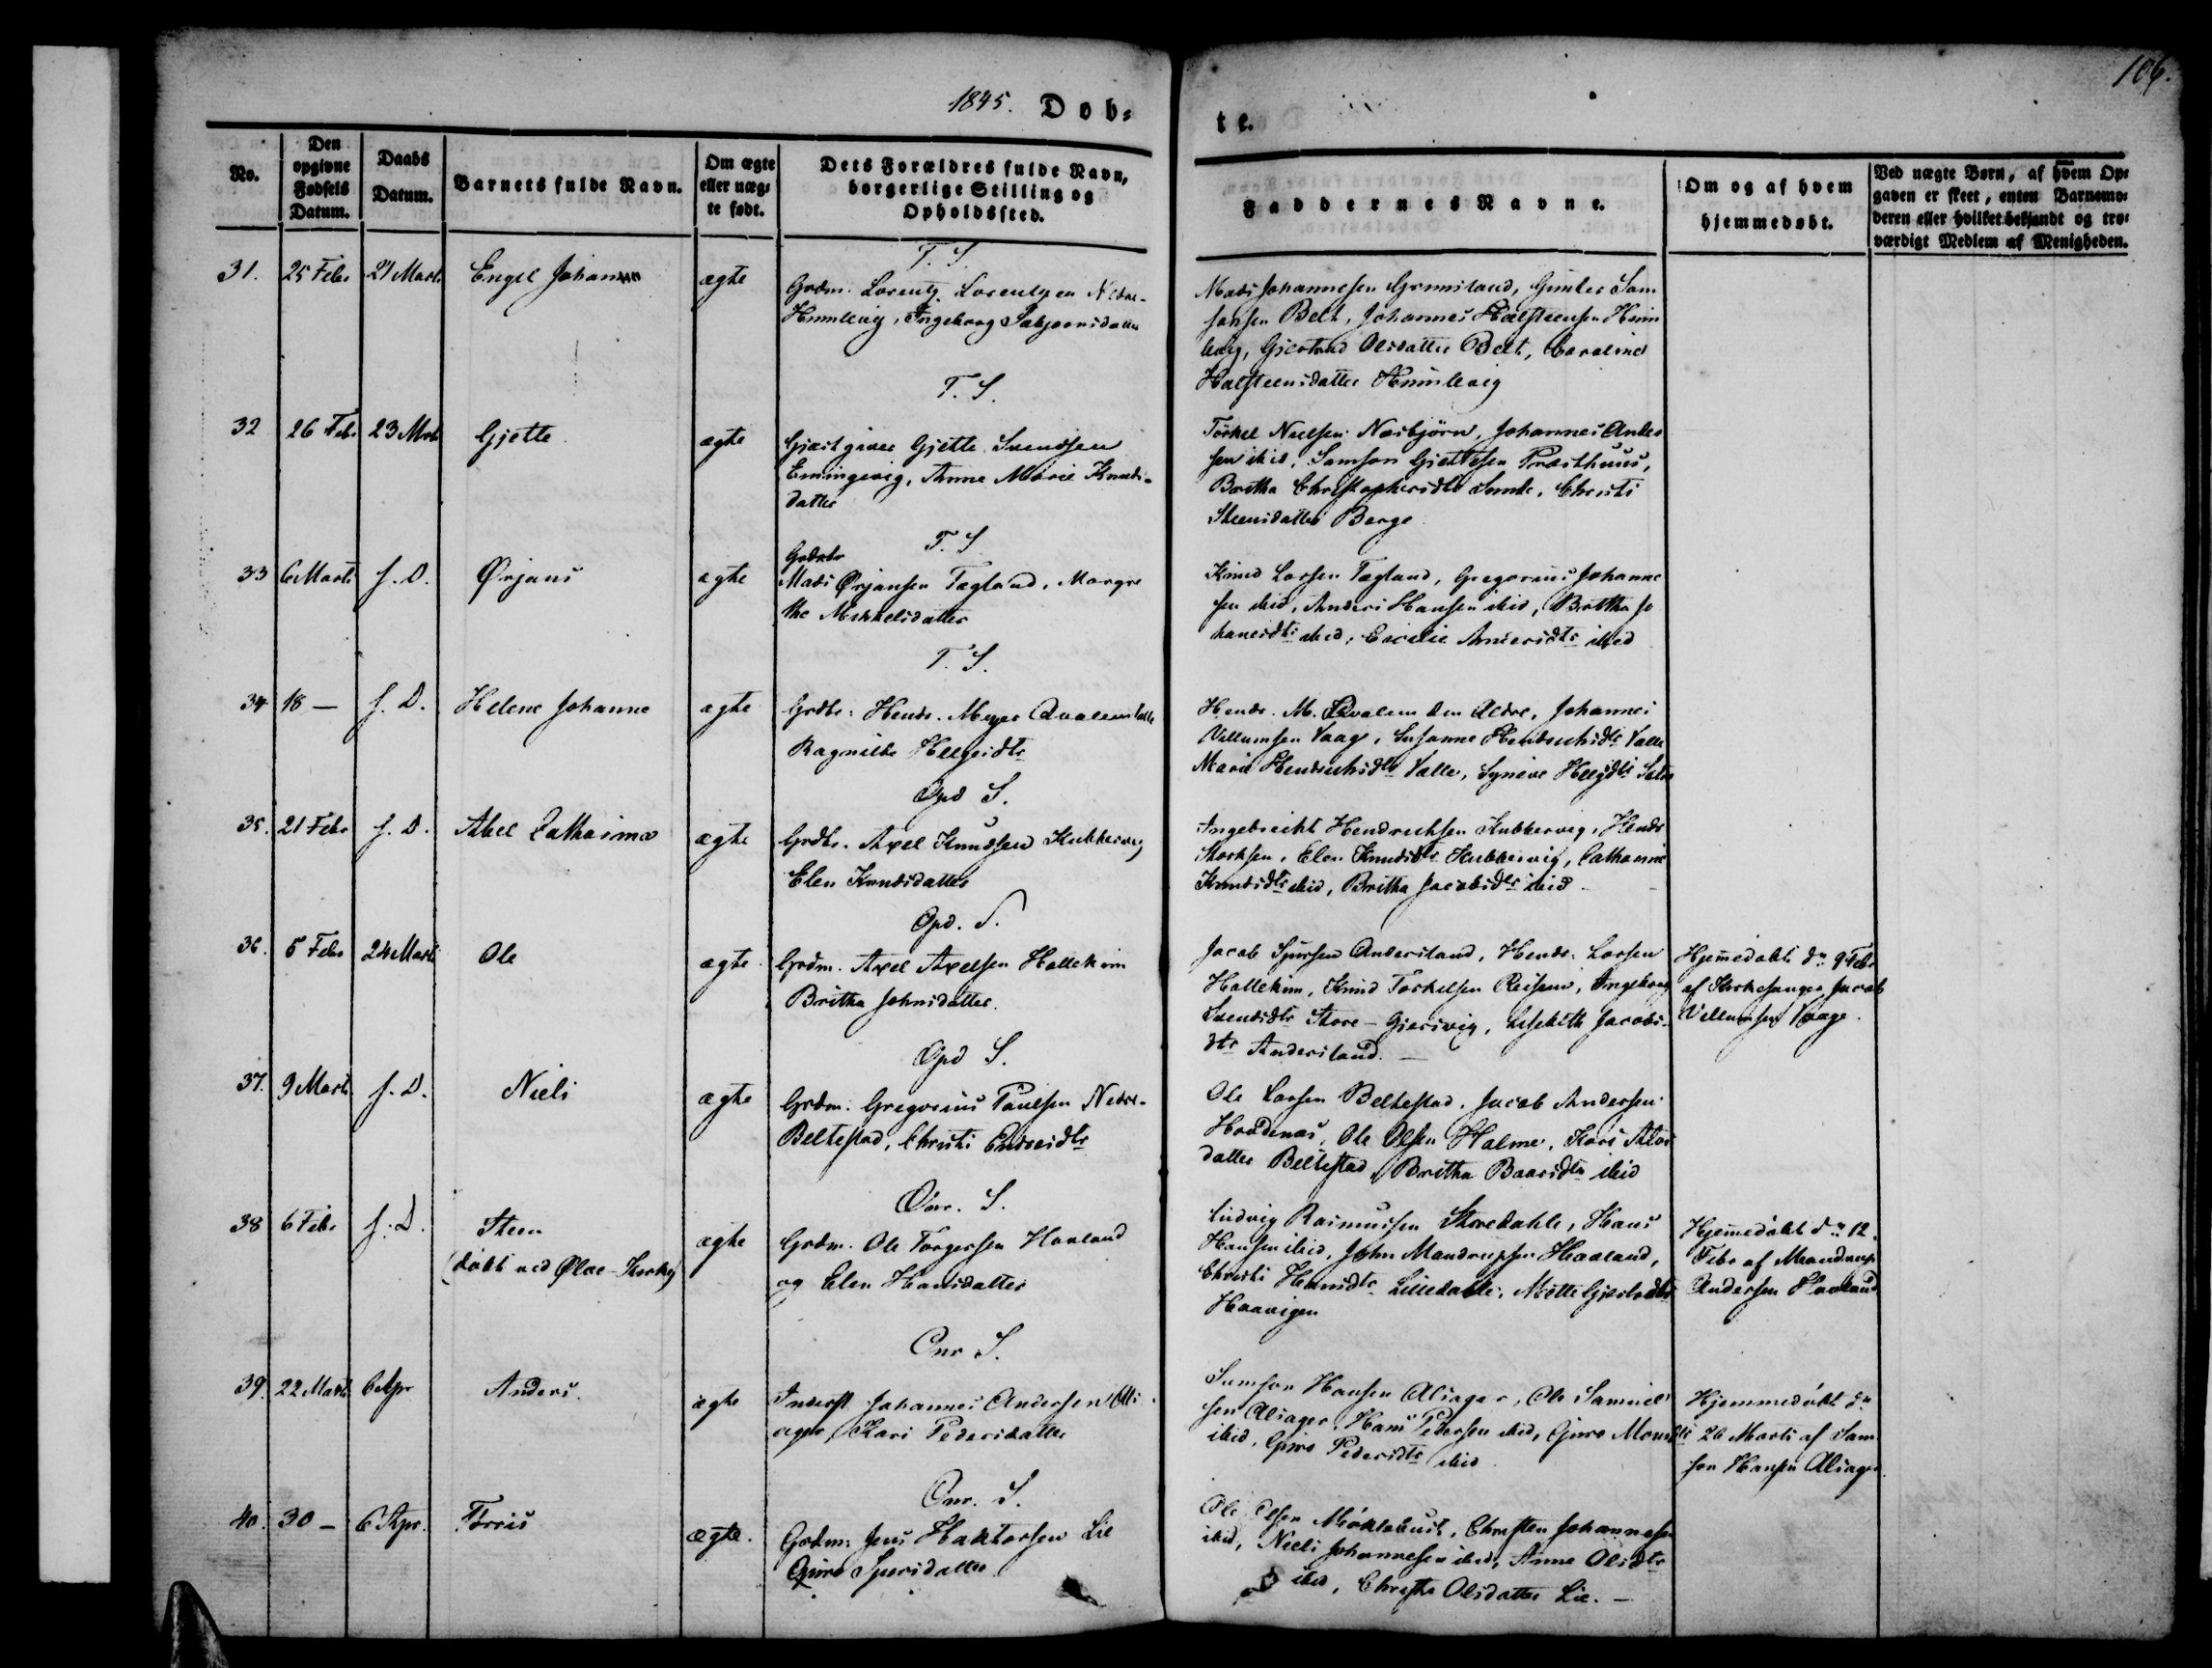 1845. Døb-
te.
106.
No.
Den
opgivne
Fødsels
Datum.
Daabs
Datum.
Barnets fulde Navn.
Om ægte
eller uæg-
te født.
Dets Forældres fulde Navn,
borgerlige Stilling og
Opholdssted.
Faddernes Navne.
Om og af hvem
hjemmedøbt.
Ved uægte Børn, af hvem Op-
gaven er skeet, enten Barnemo-
deren eller hvilket bekjendt og tro-
værdigt Medlem af Menigheden.
T. S.
31. 25 Febr 21 Marts Engel Johanna ægte
Grdm. Lorentz Lorentzen Nedre-
Huuslevig, Ingeborg
Mads Johannesen Grimsland, Gunder Sam
sonsen Belt, Johannes Halsteensen
Giertrud Olsdatter Belt, Caroline
Halsteensdatter
T. S.
32 26 Febr 23 Mrts Gjette ægte
Gjæstgiver Gjette Svendsen
Eeningevig, Anne Marie Knuds-
datter
Torkel Nielsen Næsbjørn, Johannes Ander
sen ibid, Samson Giettesen Præsthuus,
Britha Christophersdtr Sunde, Christi
Steensdatter Berge
T. S
33 6 Marts s. D. Ørjans ægte
Grdbr
Mads Ørjansen Tagland, Margre
the Mikkelsdatter
Knud Larsen Tagland, Gregorius Johanne
sen ibid, Anders Hansen ibid, Britha Jo
hanesdtr ibid, Cicilie Andersdtr ibid
T. S.
34 18 — s. D. Helene Johanne ægte
Grdbr. Hendr. Meyer Qvalem
Ragnilde Helgesdtr
Hendr. M. Qvalem den Ældre, Johannes
Villumsen Vaage, Susanne Hendrichsdtr Valle
Marie Hendrichsdtr Valle, Synève Helgdtr
Opd S.
35. 21 Febr s. D. Abel Catharina ægte
Grdbr. Axel Knudsen Kubbervig
Elen Knudsdatter
Ingebricht Hendrichsen Kubbervig, Hendr
Elen Knudsdtr Kubbervig, Catharine
Knudsdtr ibid, Britha Jacobsdtr ibid
Opd. S.
36. 5 Febr 24 Marts Ole ægte
Grdm. Axel Axelsen Hallekim
Britha Johnsdatter
Jacob Andersland, Hendr. Larsen
Hallekim, Knud Torkelsen Ingeborg
Svendsdtr Store-Giersvig, Lisebeth Jacobs-
dtr Andersland. —
Hjemmedøbt dn 9 Febr
af Kirkesanger Jacob
Villumsen Vaage.
Opd S.
37. 9 Marts s. D. Niels ægte
Grdm. Gregorius Paulsen Nedre-
Beltestad, Christi Endresdtr
Ole Larsen Beltestad, Jacob Andersen
Ole Olsen Holme, Kari
datter Beltestad, Britha Baarsdtr ibid
Ønr. S.
38 6 Febr s. D. Steen ægte
(døbt ved Ølve-Kirke)
Grdm. Ole Torgersen Haaland
og Elen Hansdatter
Ludvig Rasmussen Storedahle, Hans
Hansen ibid, John Mandrupsen Haaland,
Christi Hansdtr Lilledahle, Mette
Haavigen
Hjemmedøbt dn 12
Febr af Mandrup
Andersen Haaland
Ønr S.
39. 22 Marts 6 Apr Anders ægte
Inderst Johannes Andersen Als-
ager, Kari Pedersdatter
Samson Hansen Alsager, Ole Samuel
sen Alsager, Hans Pedersen ibid, Guro
ibid, Guro Pedersdtr ibid
Hjemmedøbt dn
26 Marts af Sam
son Hansen Alsager.
Ønr. S.
40. 30 — 6 Apr. Torris ægte.
Grdm. Jens Haktorsen Lie
Guro Sjursdatter
Ole Olsen Møklebust, Christen Johannesen
ibid, Niels Johannesen ibid, Anne Olsdtr
ibid, Christi Olsdatter Lie. —